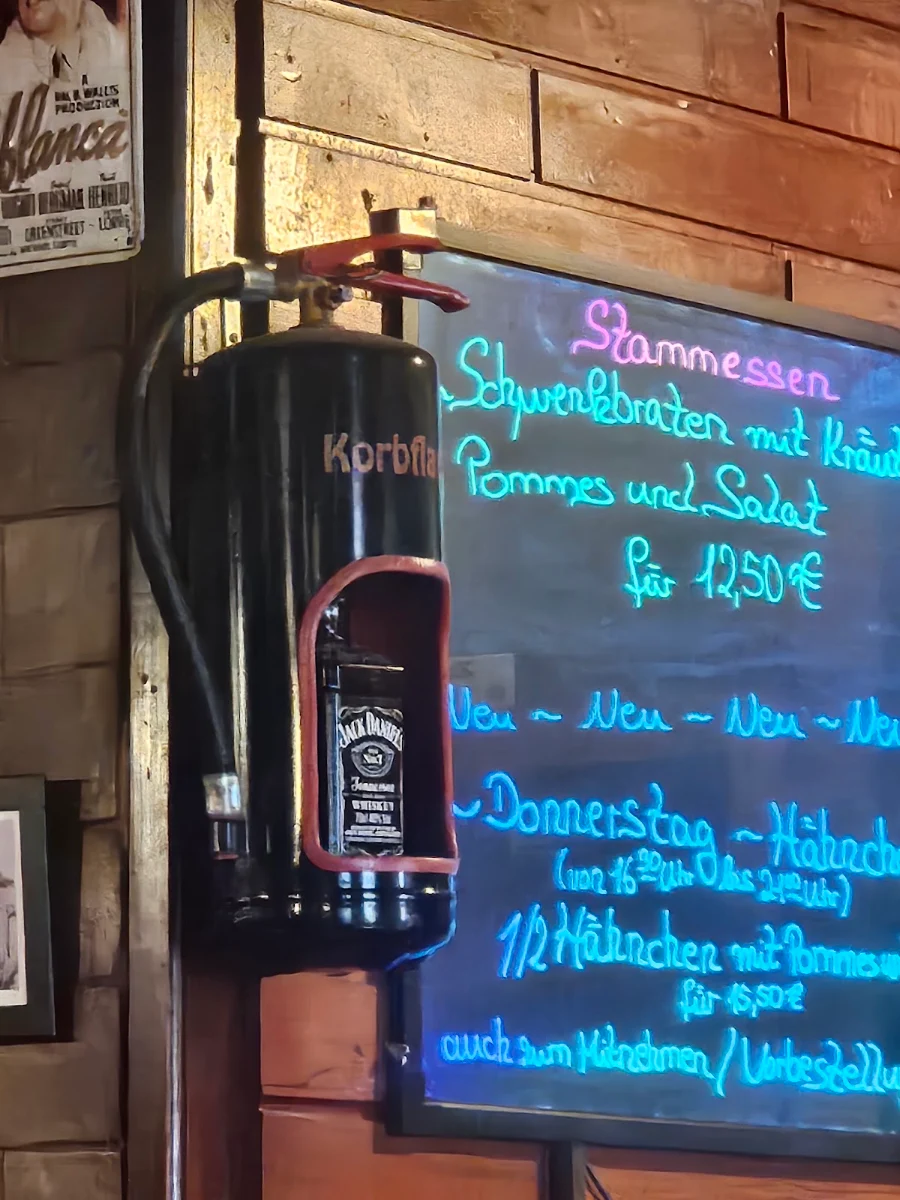 A
HAL B. WALLIS
PRODUCTION
blanca
BERGMAN HENREID
GREENSTREET LORRE
Korbfla
JACK DANIEL'S
OLD
No.7
Tennessee
WHISKEY
Stammessen
Schwenkbraten mit Kräut
Pommes und Salat
für 12,50 €
Neu ~ Neu ~ Neu ~ Neu
~ Donnerstag ~ Hähnche
(von 16⁰⁰ Uhr bis 21⁰⁰ Uhr)
1/2 Hähnchen mit Pommes
für 15,50 €
auch zum Mitnehmen / Vorbestellu